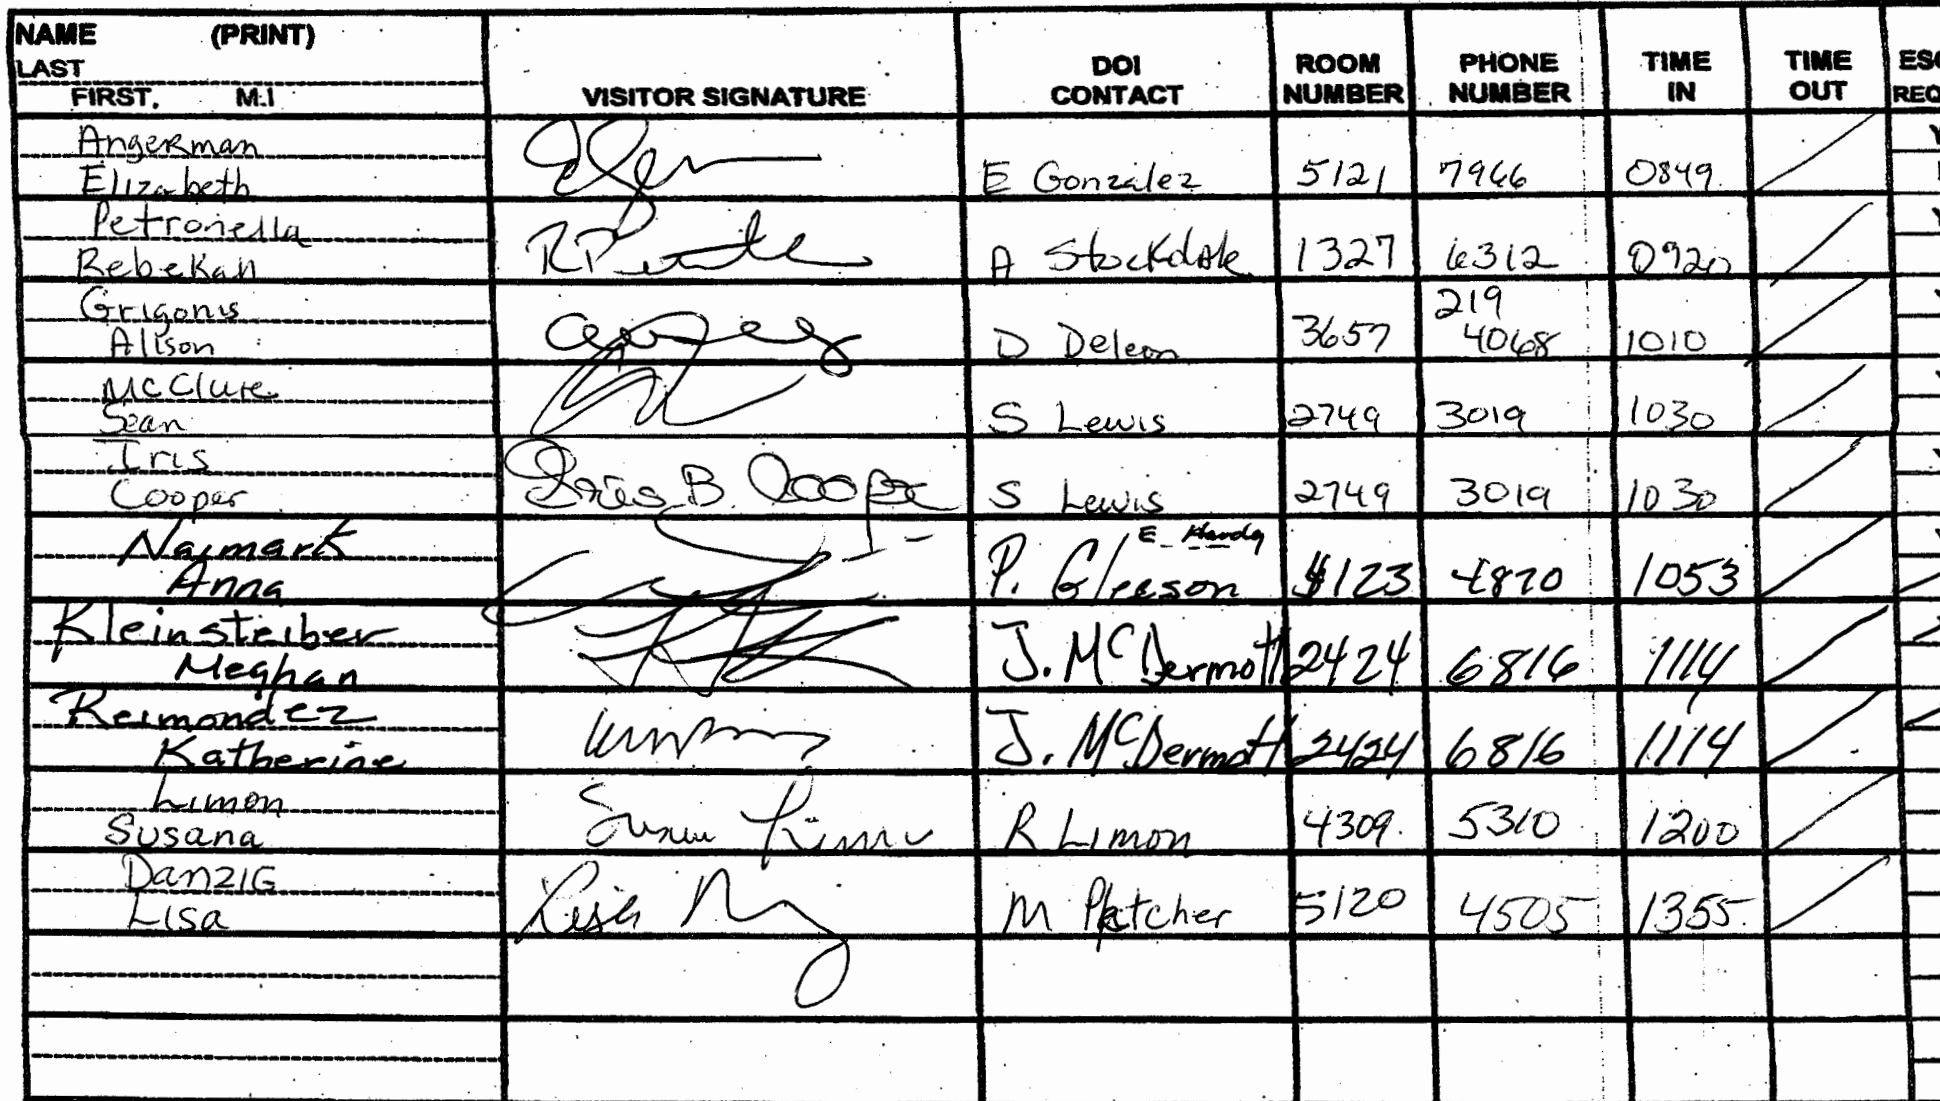 NAME (PRINT)
LAST
FIRST. M.I
VISITOR SIGNATURE
DOI CONTACT
ROOM NUMBER
PHONE NUMBER
TIME IN
TIME OUT
Angerman
Elizabeth
E Gonzalez 5121 7966 0849
Petronella
Rebekah
A Stockdale 1327 6312 0920
Grigonis
Alison
D Deleon 3657 219 4068 1010
McClure
Sean
S Lewis 2749 3019 1030
Iris
Cooper
Iris B. Cooper S Lewis 2749 3019 1030
Naimark
Anna
E. Handy
P. Gleeson 123 4870 1053
Kleinsteiber
Meghan
J. McDermott 2424 6816 1114
Reimondez
Katherine
J. McDermott 2424 6816 1114
Limon
Susana
Susana Limon R Limon 4309 5310 1200
Danzig
Lisa
Lisa M Pletcher 5120 4505 1355